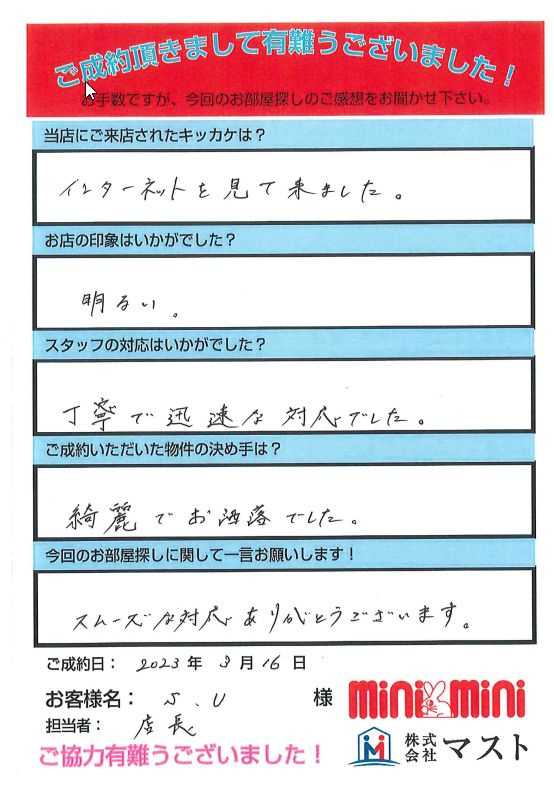 ご成約頂きまして有難うございました！
お手数ですが、今回のお部屋探しのご感想をお聞かせ下さい。
当店にご来店されたキッカケは？
インターネットを見て来ました。
お店の印象はいかがでした？
明るい。
スタッフの対応はいかがでした？
丁寧で迅速な対応でした。
ご成約いただいた物件の決め手は？
綺麗でお洒落でした。
今回のお部屋探しに関して一言お願いします！
スムーズな対応ありがとうございます。
ご成約日： 2023 年 3 月 16 日
お客様名： S.U 様
mini mini
担当者： 店長
株式会社 マスト
ご協力有難うございました！